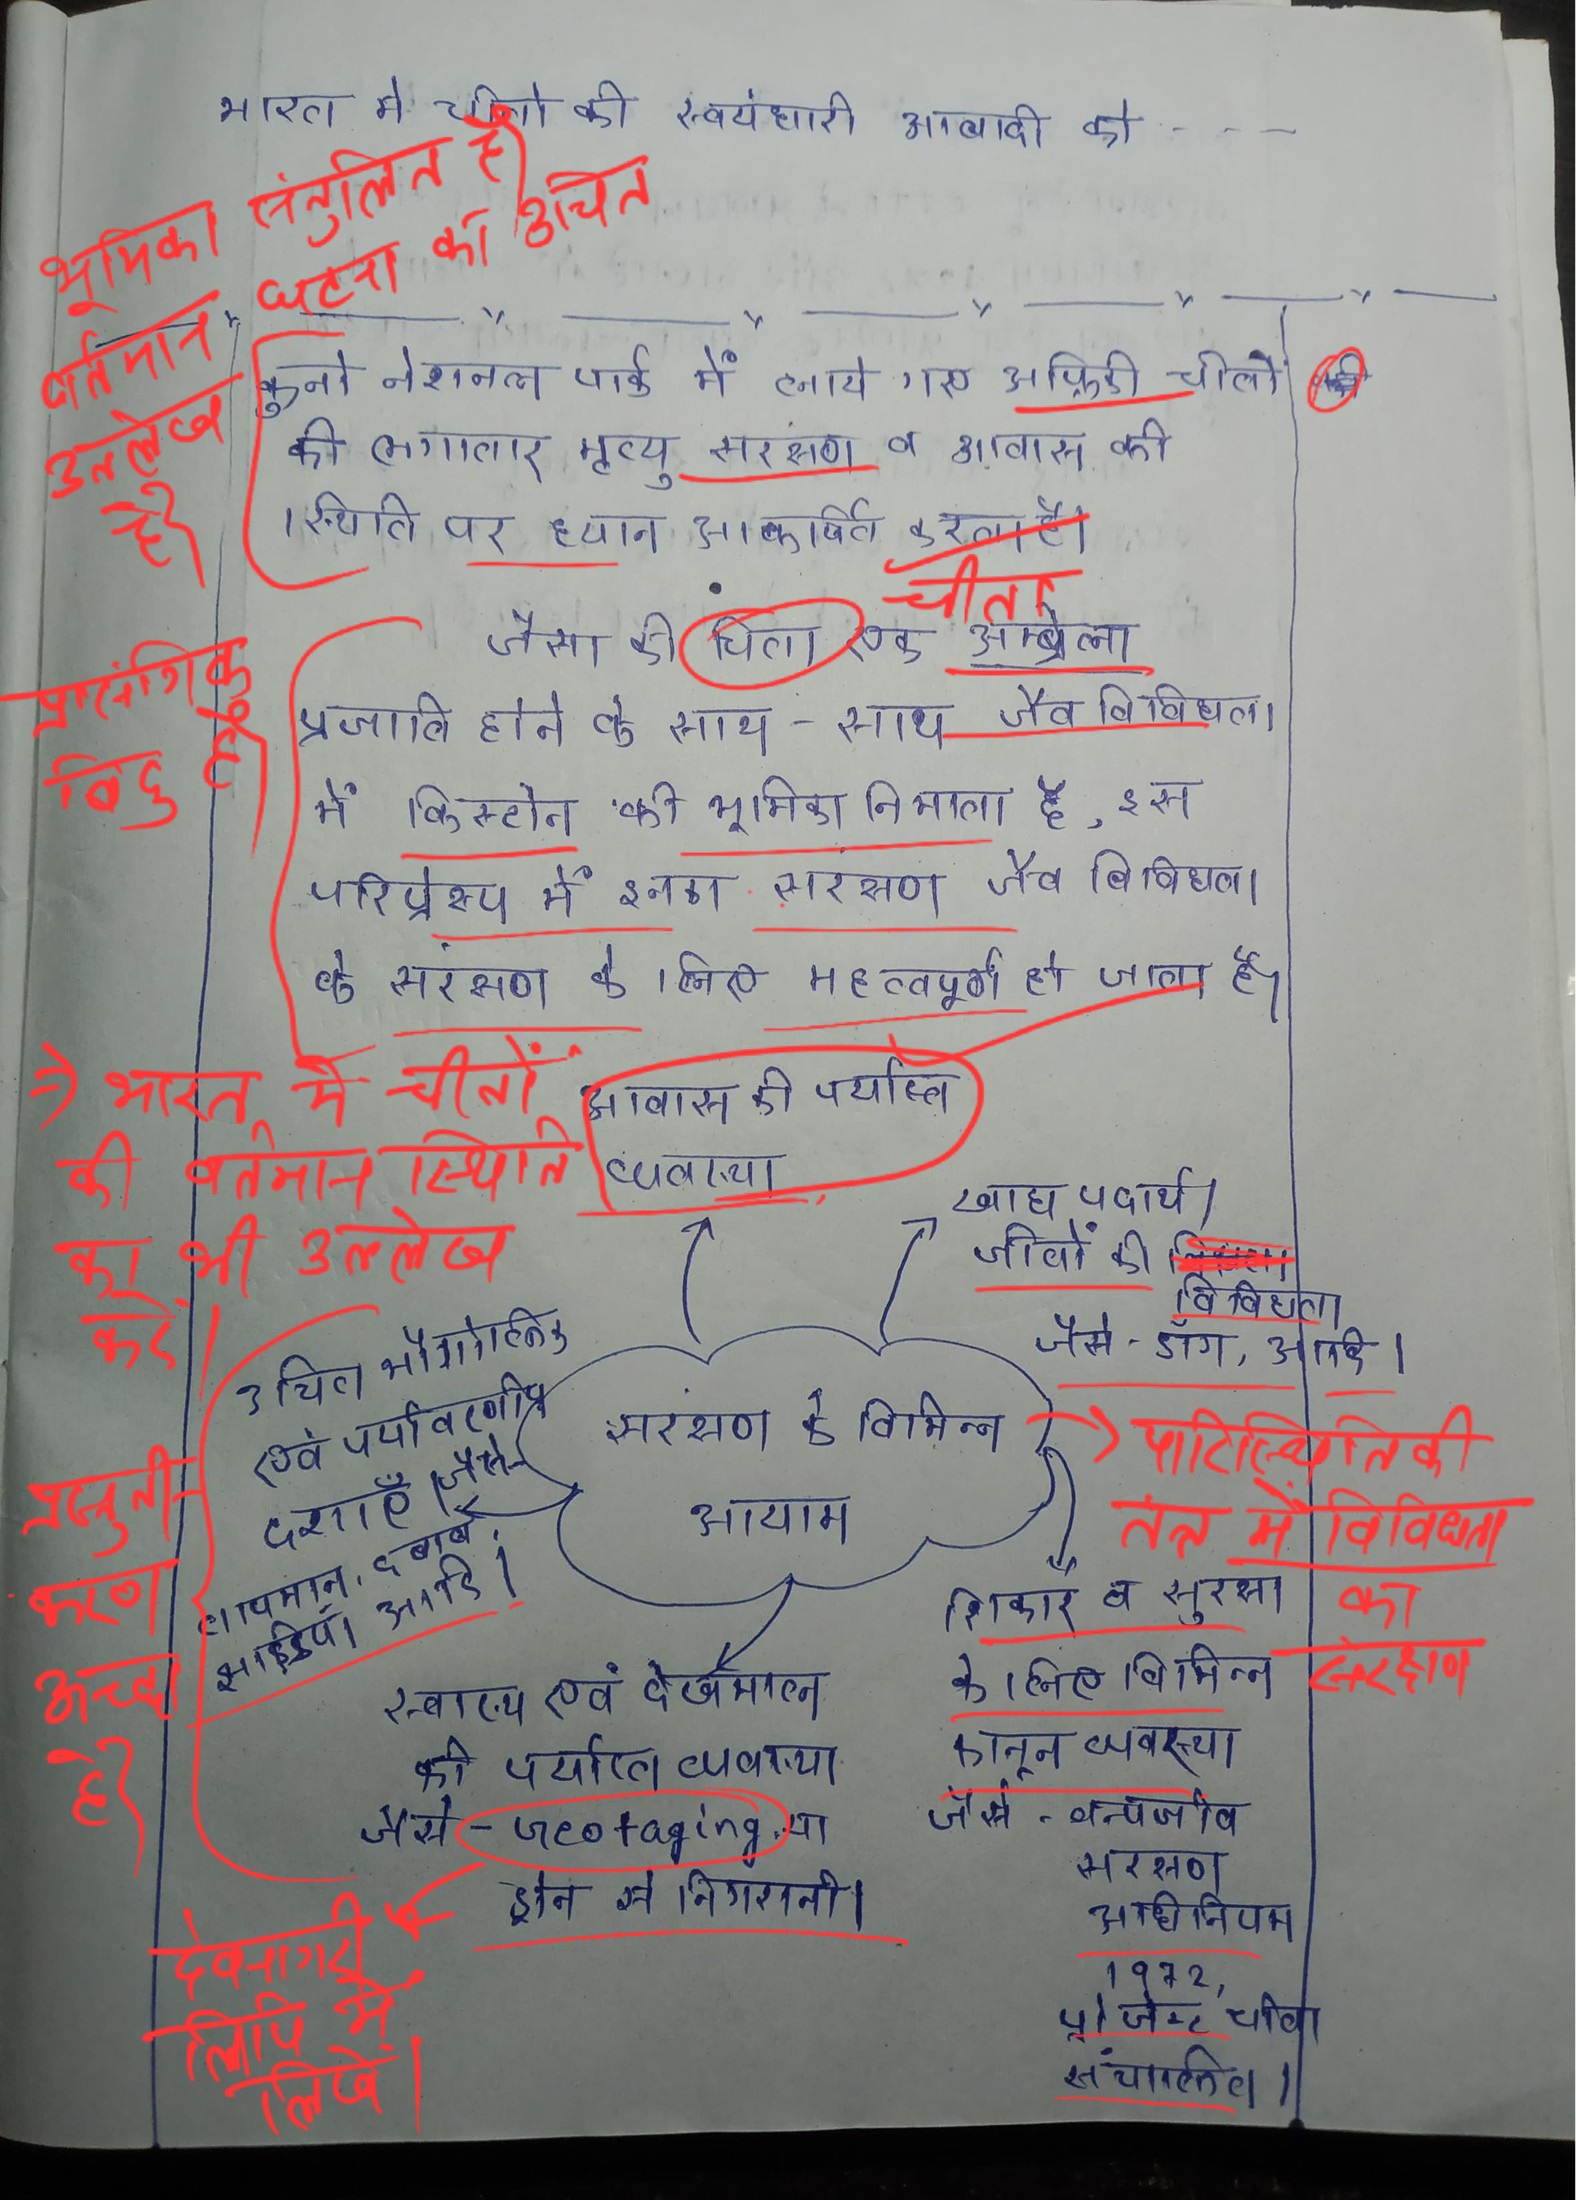 भारत मे चीतो की स्वयंधारी आबादी को - - -
भूमिका संतुलित है।
वर्तमान घटना का उचित
उल्लेख
है।
कुनो नेशनल पार्क में लाये गए अफ्रिकी चीतो की
की लगातार मृत्यु सरंक्षण व आवास की
स्थिति पर ध्यान आकर्षित करता है।
चीता
प्रासंगिक
बिंदु है।
जैसा की चिता एक अम्ब्रेला
प्रजाति होने के साथ - साथ जैव विविधता
में किस्टोन की भूमिका निभाता है, इस
परिप्रेक्ष्य में इनका सरंक्षण जैव विविधता
के सरंक्षण के लिए महत्वपूर्ण हो जाता है।
⇒ भारत में चीतों
की वर्तमान स्थिति
का भी उल्लेख
करें।
आवास की पर्याप्त
व्यवस्था
खाद्य पदार्थ।
जीवों की
विविधता
जैसे - डॉग, आदि।
उचित भौगोलिक
एवं पर्यावरणीय
दशाएँ। जैसे-
तापमान, दबाव,
आर्द्रता आदि।
सरंक्षण के विभिन्न
आयाम
→ पारिस्थितिकी
तंत्र में विविधता
का
संरक्षण
प्रस्तुती-
करण
अच्छा
है।
शिकार व सुरक्षा
के लिए विभिन्न
कानून व्यवस्था
जैसे - वन्यजीव
सरंक्षण
अधिनियम
1972,
प्रोजेक्ट चीता
संचालित।
स्वास्थ्य एवं देखभाल
की पर्याप्त व्यवस्था
जैसे - Geotaging या
ड्रोन से निगरानी।
देवनागरी
लिपि में
लिखें।